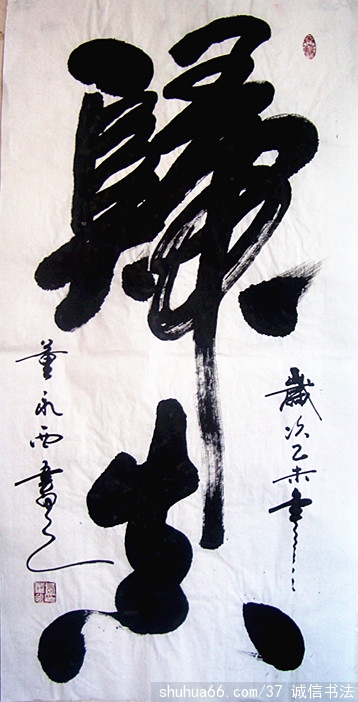 歸真
歲次乙未年
董永西書之
shuhua66.com/37 诚信书法